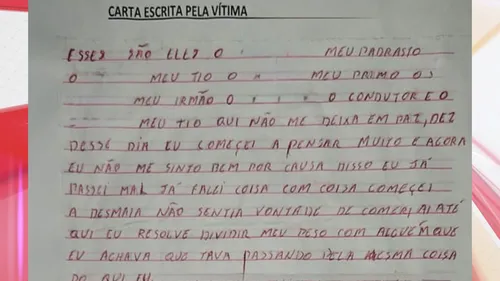 CARTA ESCRITA PELA VÍTIMA
ESSES SÃO ELES O MEU PADRASTO
O MEU TIO O MEU PRIMO OS
MEU IRMÃO O O CONDUTOR E O
MEU TIO QUI NÃO ME DEIXA EM PAZ, DEZ
DESSE DIA EU COMEÇEI A PENSAR MUITO E AGORA
EU NÃO ME SINTO BEM POR CAUSA DISSO EU JÁ
PASSEI MAL JÁ FALEI COISA COM COISA COMEÇEI
A DESMAIA NÃO SENTIA VONTADE DE COMER, AI ATÉ
QUI EU RESOLVE DIVIDIR MEU PESO COM ALGUÉM QUE
EU ACHAVA QUE TAVA PASSANDO PELA MESMA COISA
DO QUI EU.